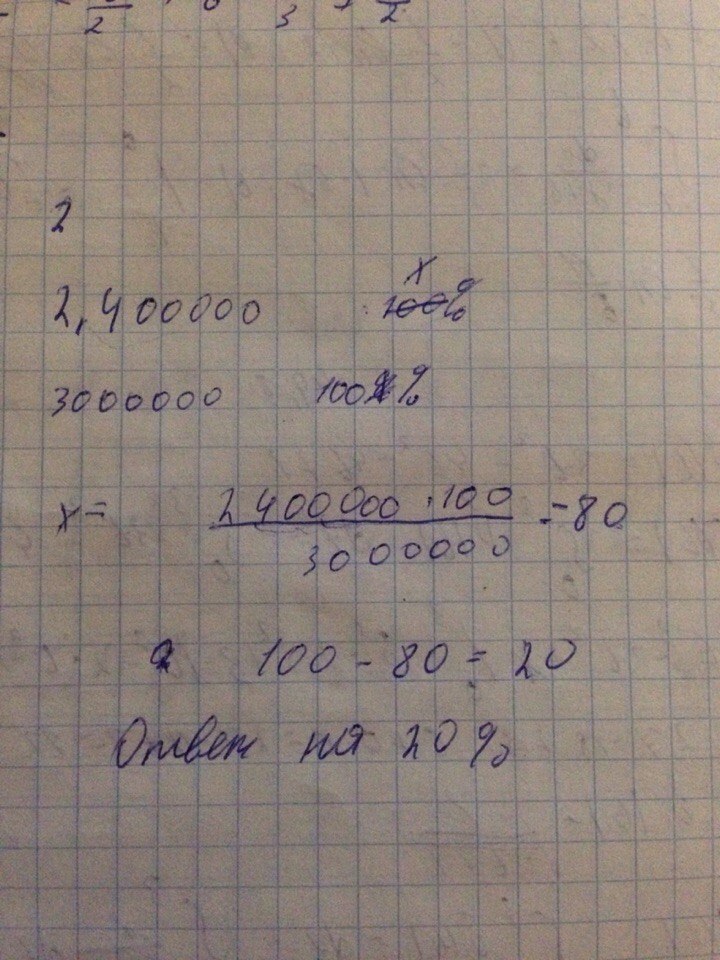 2
2,400000 x ~~100~~%
3000000 100%
x = 2400000 · 100 / 3000000 = 80
100 - 80 = 20
Ответ на 20%